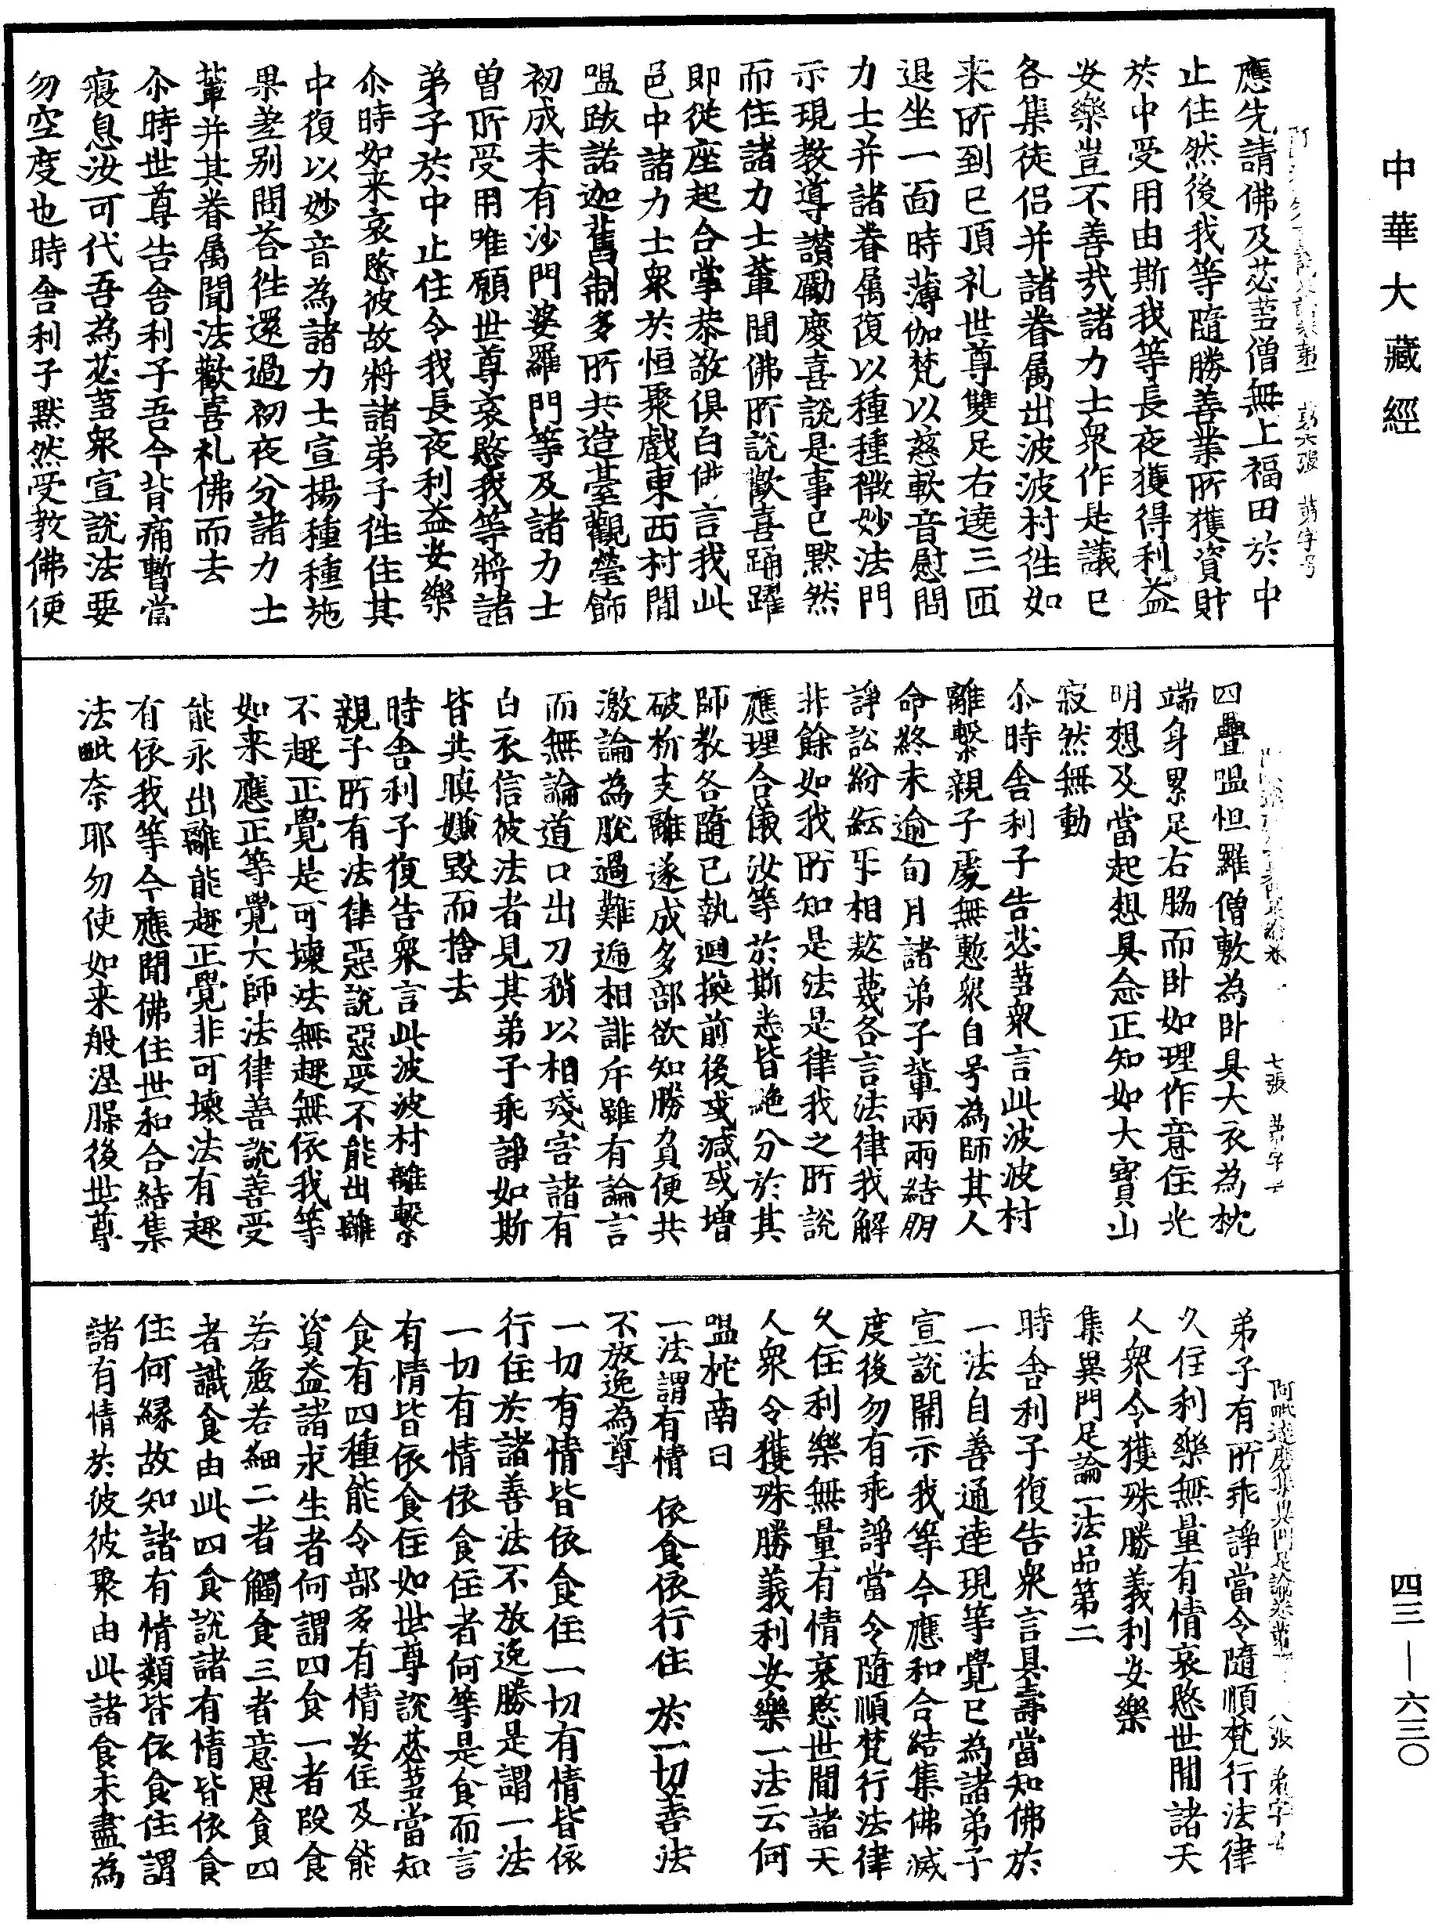 中華大藏經
應先請佛及苾芻僧無上福田於中
止住然後我等隨勝善業所獲資財
於中受用由斯我等長夜獲得利益
安樂豈不善哉諸力士衆作是議已
各集徒侶并諸眷属出波波村徃如
来所到已頂礼世尊雙足右遶三匝
退坐一面時薄伽梵以慈軟音慰問
力士并諸眷属復以種種微妙法門
示現教導讃勵慶喜說是事已黙然
而住諸力士輩聞佛所說歡喜踊躍
即從座起合掌恭敬俱白佛言我此
邑中諸力士衆於恒聚戲東西村間
嗢跋諾迦舊制多所共造臺觀瑩飾
初成未有沙門婆羅門等及諸力士
曾所受用唯願世尊哀愍我等將諸
弟子於中止住令我長夜利益安樂
尒時如来哀愍彼故將諸弟子徃住其
中復以妙音為諸力士宣揚種種施
果差别問荅徃還過初夜分諸力士
輩并其眷属聞法歡喜礼佛而去
尒時世尊告舍利子吾今背痛暫當
寢息汝可代吾為苾芻衆宣說法要
勿空度也時舍利子黙然受教佛便
四疊嗢怛羅僧敷為卧具大衣為枕
端身累足右脇而卧如理作意住光
明想及當起想具念正知如大寶山
寂然無動
尒時舍利子告苾芻衆言此波波村
離繫親子處無慙衆自号為師其人
命終未逾旬月諸弟子輩兩兩結朋
諍訟紛紜㸦相欺蔑各言法律我解
非餘如我所知是法是律我之所說
應理合儀汝等於斯悉皆絶分於其
師教各隨己執迴換前後或減或增
破析支離遂成多部欲知勝負便共
激論為脫過難遞相誹斥雖有論言
而無論道口出刀矟以相殘害諸有
白衣信彼法者見其弟子乖諍如斯
皆共瞋嫌毀而捨去
時舍利子復告衆言此波波村離繫
親子所有法律惡說惡受不能出離
不趣正覺是可壞法無趣無依我等
如来應正等覺大師法律善說善受
能永出離能趣正覺非可壞法有趣
有依我等今應聞佛住世和合結集
法毗奈耶勿使如来般涅槃後世尊
阿毗達磨集異門足論卷第一 八張 弟字号
弟子有所乖諍當令隨順梵行法律
久住利樂無量有情哀愍世閒諸天
人衆令獲殊勝義利安樂
集異門足論一法品第二
時舍利子復告衆言具壽當知佛於
一法自善通達現等覺已為諸弟子
宣說開示我等今應和合結集佛滅
度後勿有乖諍當令隨順梵行法律
久住利樂無量有情哀愍世間諸天
人衆令獲殊勝義利安樂一法云何
嗢柁南曰
一法謂有情 依食依行住 於一切善法
不放逸為尊
一切有情皆依食住一切有情皆依
行住於諸善法不放逸勝是謂一法
一切有情依食住者何等是食而言
有情皆依食住如世尊說苾芻當知
食有四種能令部多有情安住及能
資益諸求生者何謂四食一者段食
若麁若細二者觸食三者意思食四
者識食由此四食說諸有情皆依食
住何縁故知諸有情類皆依食住謂
諸有情於彼彼聚由此諸食未盡為
四三—六三〇